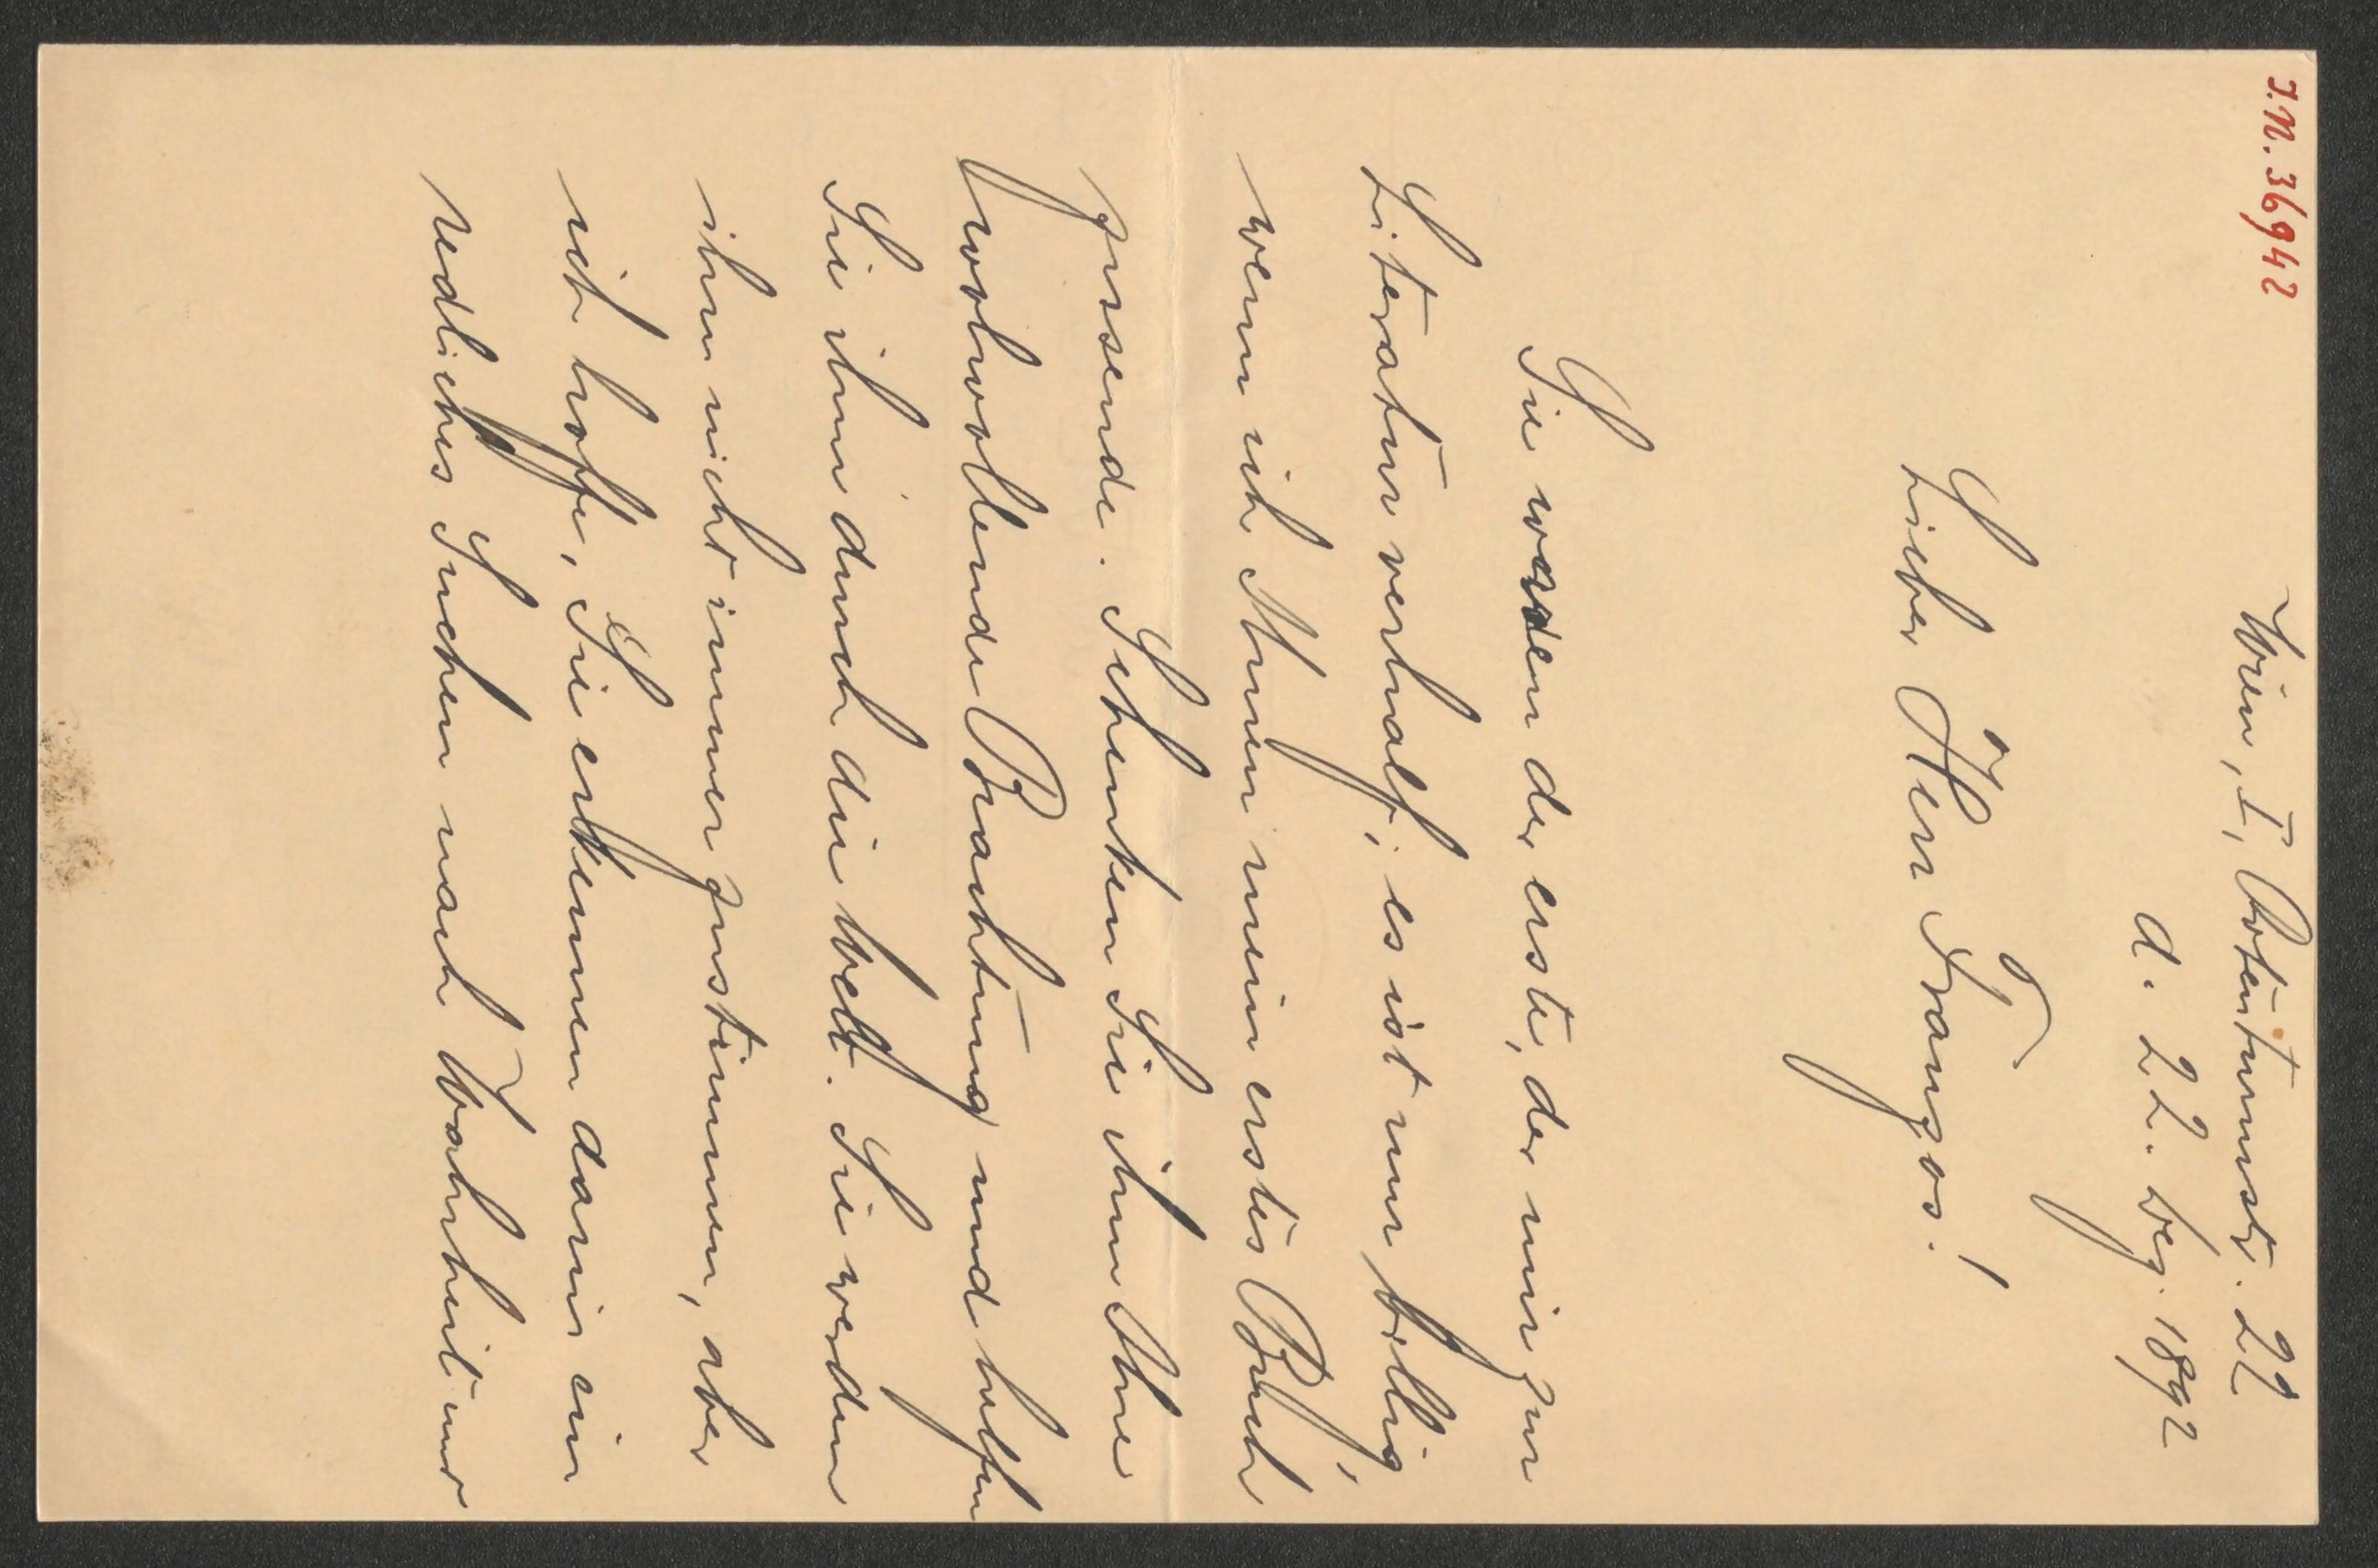 J.N. 36942
Wien, I, Rotenturmstr. 22
d. 22. Dez. 1892
Lieber Herr Franzos!
Sie waren der erste, der mir zur
Literatur verhalf; es ist nur billig,
wenn ich Ihnen mein erstes Buch
zusende. Schenken Sie ihm Ihre
wohlwollende Beachtung und helfen
Sie ihm durch die Welt. Sie werden
ihm nicht immer zustimmen, aber
ich hoffe, Sie erkennen darin ein
redliches Suchen nach Wahrheit und